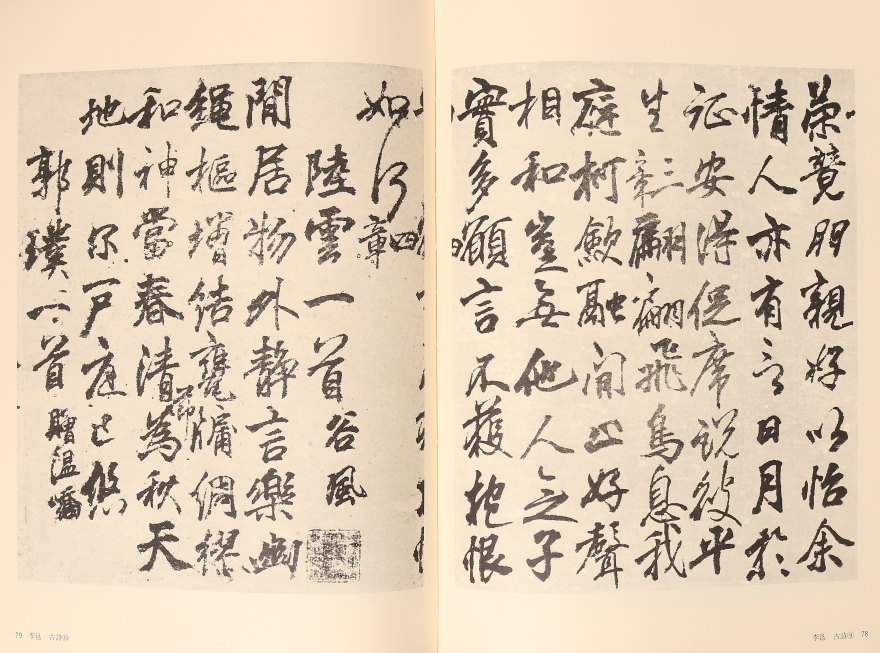 榮競朋親好以怡余
情人亦有言日月於
征安得促席說彼平
生三章翩翩飛鳥息我
庭柯斂翮間止好聲
相和豈無他人念子
實多願言不獲抱恨
如何四章
陸雲一首谷風
閒居物外靜言樂幽
繩樞增結甕牖綢繆
和神當春清節為秋天
地則尔戶庭已悠
郭璞一首贈溫嶠
李邕 古詩⑨ 78
79 李邕 古詩⑩